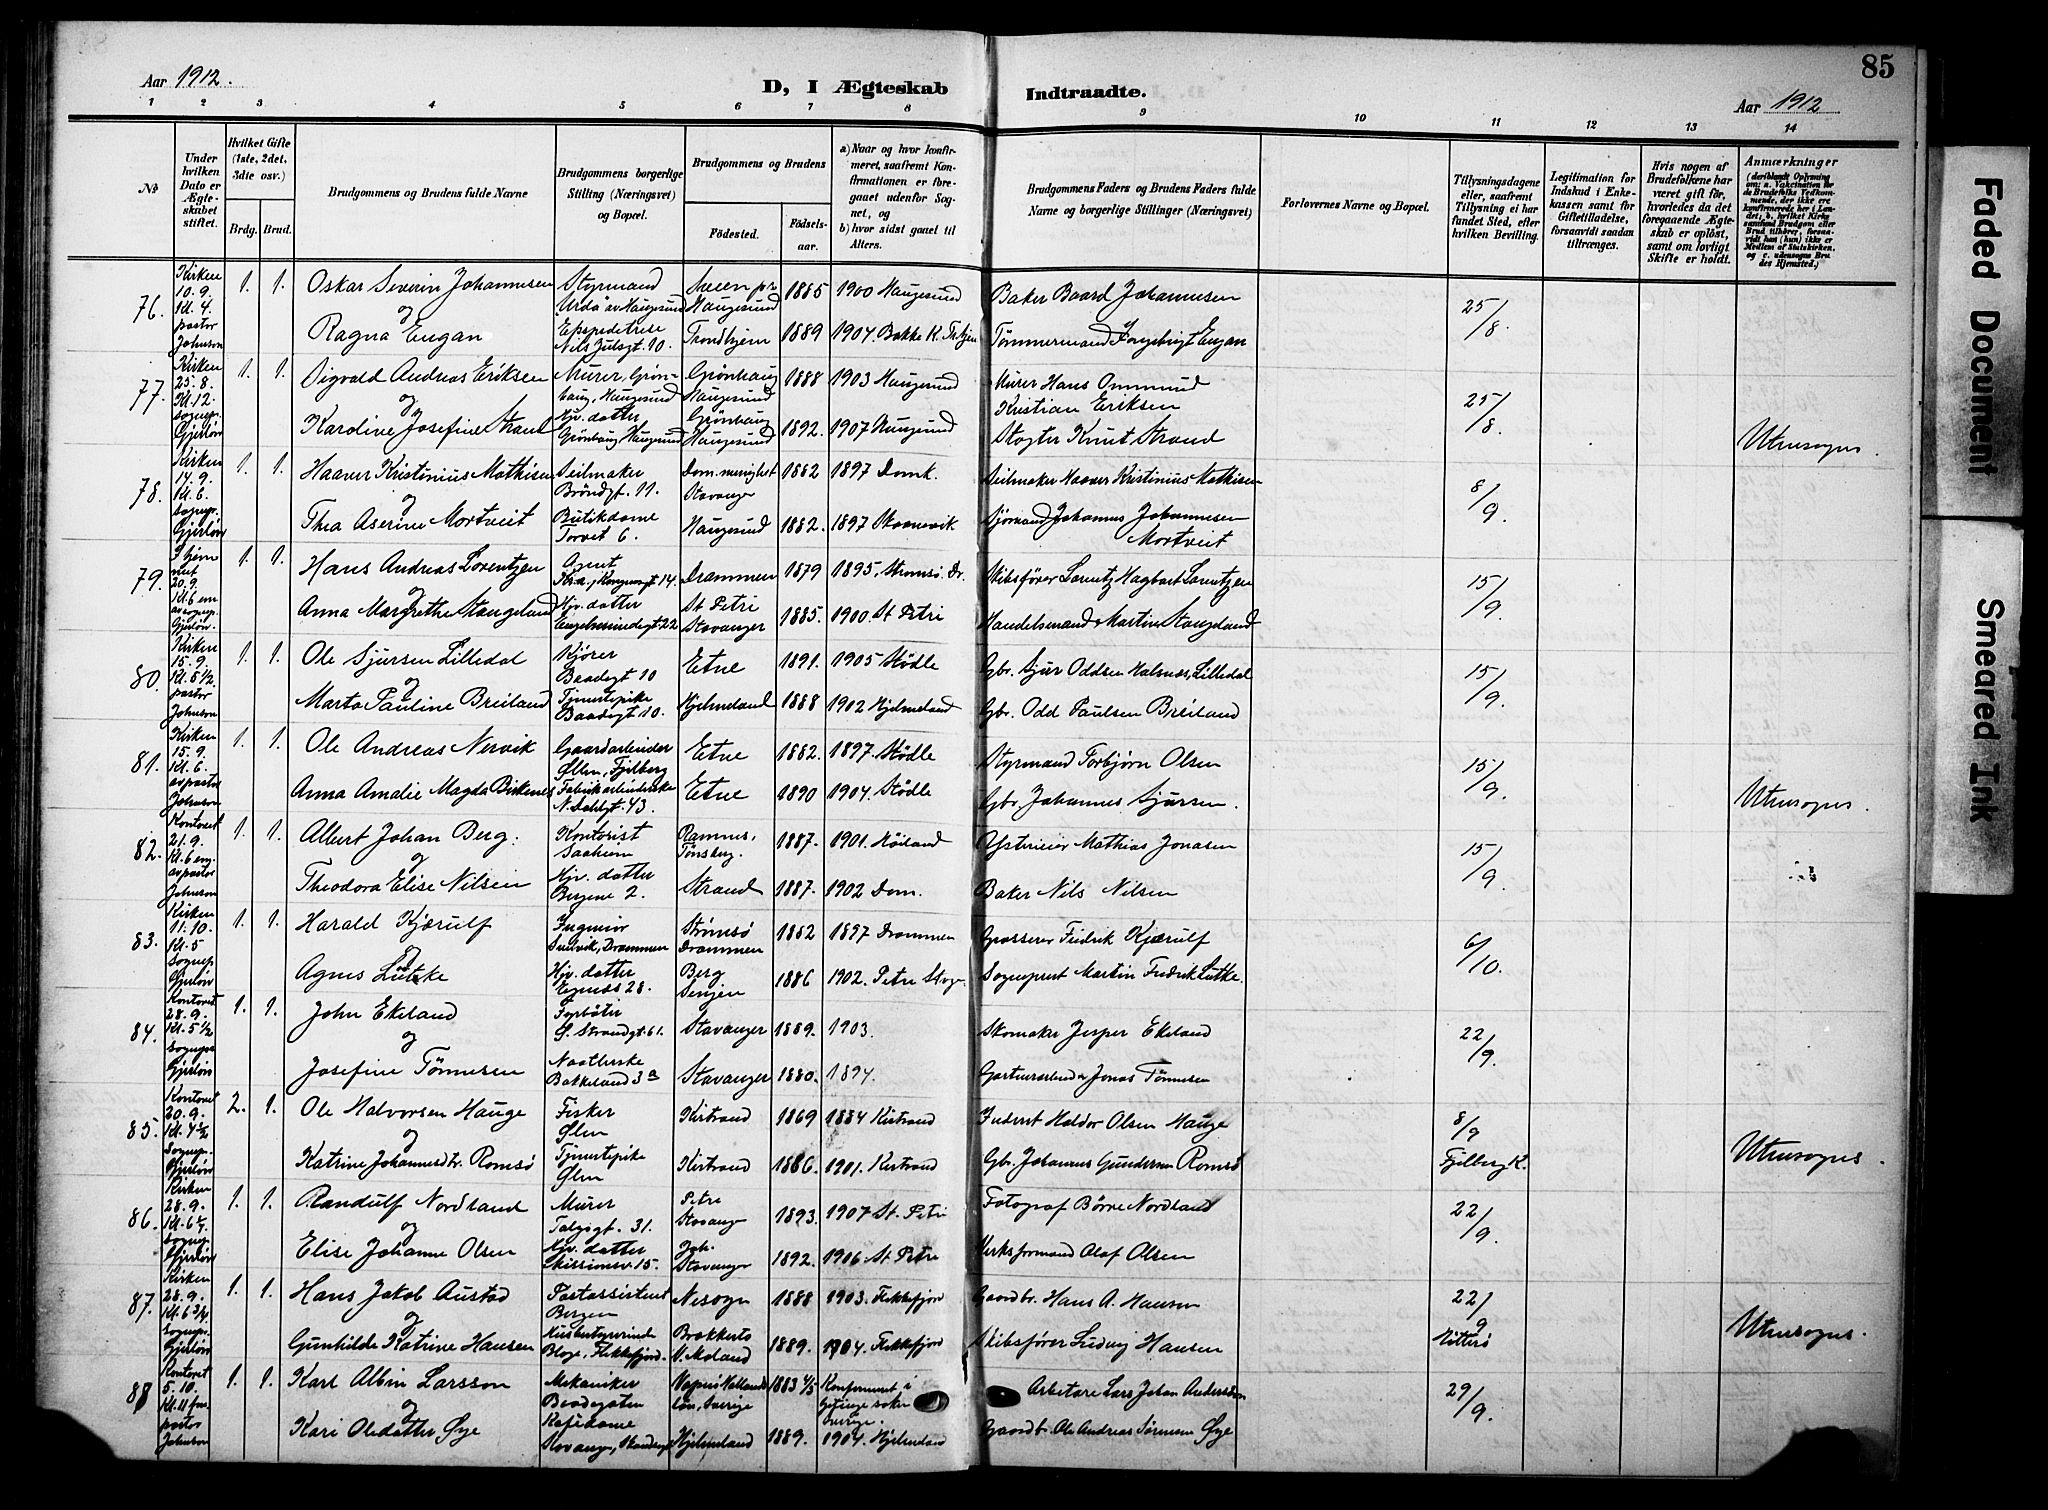 85
Aar 1912.
D, I Ægteskab
Indtraadte.
Aar 1912
1 2 3 4 5 6 7 8 9 10 11 12 13 14
№
Under hvilken Dato er Ægteskabet stiftet.
Hvilket Gifte (1ste, 2det, 3die osv.)
Brdg. Brud.
Brudgommens og Brudens fulde Navne
Brudgommens borgerlige Stilling (Næringsvei) og Bopæl.
Brudgommens og Brudens
Födested.
Födselsaar.
a) Naar og hvor konfirmeret, saafremt Konfirmationen er foregaaet udenfor Sognet, og
b) hvor sidst gaaet til Alters.
Brudgommens Faders og Brudens Faders fulde Navne og borgerlige Stillinger (Næringsvei)
Forlovernes Navne og Bopæl.
Tillysningsdagene eller, saafremt Tillysning ei har fundet Sted, efter hvilken Bevilling.
Legitimation for Indskud i Enkekassen samt for Giftetilladelse, forsaavidt saadan tiltrænges.
Hvis nogen af Brudefolkene har været gift för, hvorledes da det foregaaende Ægteskab er oplöst, samt om lovligt Skifte er holdt.
Anmærkninger
76. Kirken 10.9. Kl. 4. pastor Johnson
1. 1. Oskar Severin Johannesen Styrmand Haugesund 1885 1900 Haugesund Baker Baard Johannesen 25/8.
og
Ragna Engan Nils Julsgt. 10. Trondhjem 1889 1904. Bakke K. Tømmermand Engan
77. Kirken 25.8. Kl. 12. sognepr. Gjerløv
1. 1. Sigvald Andreas Eriksen Murer, Grønhaug, Haugesund Grønhaug Haugesund 1888 1903 Haugesund Murer Hans Ommund Kristian Eriksen 25/8.
og
Karoline Josefine Strand Hjv. datter Grønhaug Haugesund Grønhaug Haugesund 1892. 1907 Haugesund Knut Strand Utensogns.
78. Kirken 14.9. Kl. 6. sognepr. Gjerløv
1. 1. Haaver Kristinius Mathisen Seilmaker Brøndgt. 11. Dom. menighet Stavanger 1882 1897 Domk. Seilmaker Haaver Kristinius Mathisen 8/9.
og
Thea Aserine Mortveit Butikdame Torvet 6. Haugesund 1882. 1897 Skaanevik Sjømand Johannes Johannesen Mortveit
79. Hjemmet 20.9. Kl. 6 em av sognepr. Gjerløv.
1. 1. Hans Andreas Lorentzen Agent Kr.a, 14. Drammen 1879 1895, Strømsø. Dr. Skibsfører Lorentz Hagbart Lorentzen 15/9.
og
Anna Margrethe Stangeland Hjv. datter 22 St. Petri Stavanger 1885. 1900. St. Petri Handelsmand Martin Stangeland
80. Kirken 15.9. Kl. 5 1/2 pastor Johnson
1. 1. Ole Sjursen Lilledal Kjører Baadsgt 10 Etne 1891. 1905 Stødle Gbr. Sjur Oddsen Halsnæs, Lilledal 15/9.
og
Marta Pauline Breiland Tjenestepike Baadsgt 10. Hjelmeland 1888 1902 Hjelmeland Gbr. Odd Paulsen Breiland
81. Kirken 15.9. Kl. 6. av pastor Johnson
1. 1. Ole Andreas Nervik Gaardarbeider Ølen, Fjelberg Etne 1882. 1897. Stødle Styrmand Torbjørn Olsen 15/9.
Anna Amalie Magda Birkenes Fabrikarbeiderske 43. Etne 1890 1904. Stødle Gbr. Johannes Sjursen. Utensogns.
82. Kontoret 21.9. Kl. 6 em. av pastor Johnson
1. 1. Albert Johan Berg. Kontorist Ramnes, Tønsberg. 1887. 1901. Høiland Mathias Jonasen 15/9.
og
Theodora Elise Nilsen Hjv. datter Bergene 2. Strand 1887. 1902 Dom. Baker Nils Nilsen
83. Kirken 11.10. Kl. 5 sognep. Gjerløv
1. 1. Harald Kjærulf Ingeniør Drammen Strømsø Drammen 1882 1897 Drammen Grosserer Fredrik Kjærulf 6/10.
Agnes Lütke Hjv. datter Egenæs 28. Berg Senjen 1886 1902. Petri Stvgr. Sogneprest Martin Fredrik Lütke.
84. Kontoret 28.9. Kl. 5 1/2 sognepr. Gjerløv
1. 1. John Ekeland Fyrbøter 61. Stavanger 1889. 1903. Skomaker Jesper Ekeland 22/9.
og
Josefine Tønnesen Bakkeland 3a Stavanger 1880. 1894. Gartnerarbeider Jonas Tønnesen
85. Kontoret 20.9. Kl. 4 1/2 Sognep. Gjerløv
2. 1. Ole Halvorsen Hauge Fisker Ølen Kistrand 1869 1884 Kistrand Inderst Haldor Olsen Hauge 8/9 Fjelberg K.
og
Katrine Johannesdtr. Romsø Tjenestepike Ølen Kistrand 1886. 1901. Kistrand Gbr. Johannes Gundersen Romsø Utensogns.
86. Kirken 28.9. Sognep. Gjerløv
1. 1. Randulf Nordland Murer 31. Petri Stavanger 1893. 1907 St. Petri Fotograf Børre Nordland 22/9.
og
Elise Johanne Olsen Hjv. datter Missionsv. 15. Joh. Stavanger 1892. 1906. St. Petri Olaf Olsen
87. Kirken 28.9. Kl. 6 3/4 sognepr. Gjerløv
1. 1. Hans Jakob Austad Postassistent Bergen Nesogn 1888 1903. Flekkefjord Gaardbr. Hans A. Hansen 22/9 Hitterø
og
Gunhilde Katrine Hansen Flekkefjord. Brækkestø V. Moland 1889. 1904. Flekkefjord Skibsfører Ludvig Hansen Utensogns.
88 Kontoret 5.10. Kl. 11 fm. pastor Johnson
1. 1. Karl Albin Larsson Mekaniker Baadsgaten Sverige 1883 4/5 Konfirmeret i Sverige. Arbetare Lars Johan Andersson 29/9.
og
Kari Olsdatter Øye Kafédame Stavanger, Hjelmeland 1889. 1904. Hjelmeland Gaardbr. Ole Andreas Tørresen Øye
Faded Document
Smeared Ink